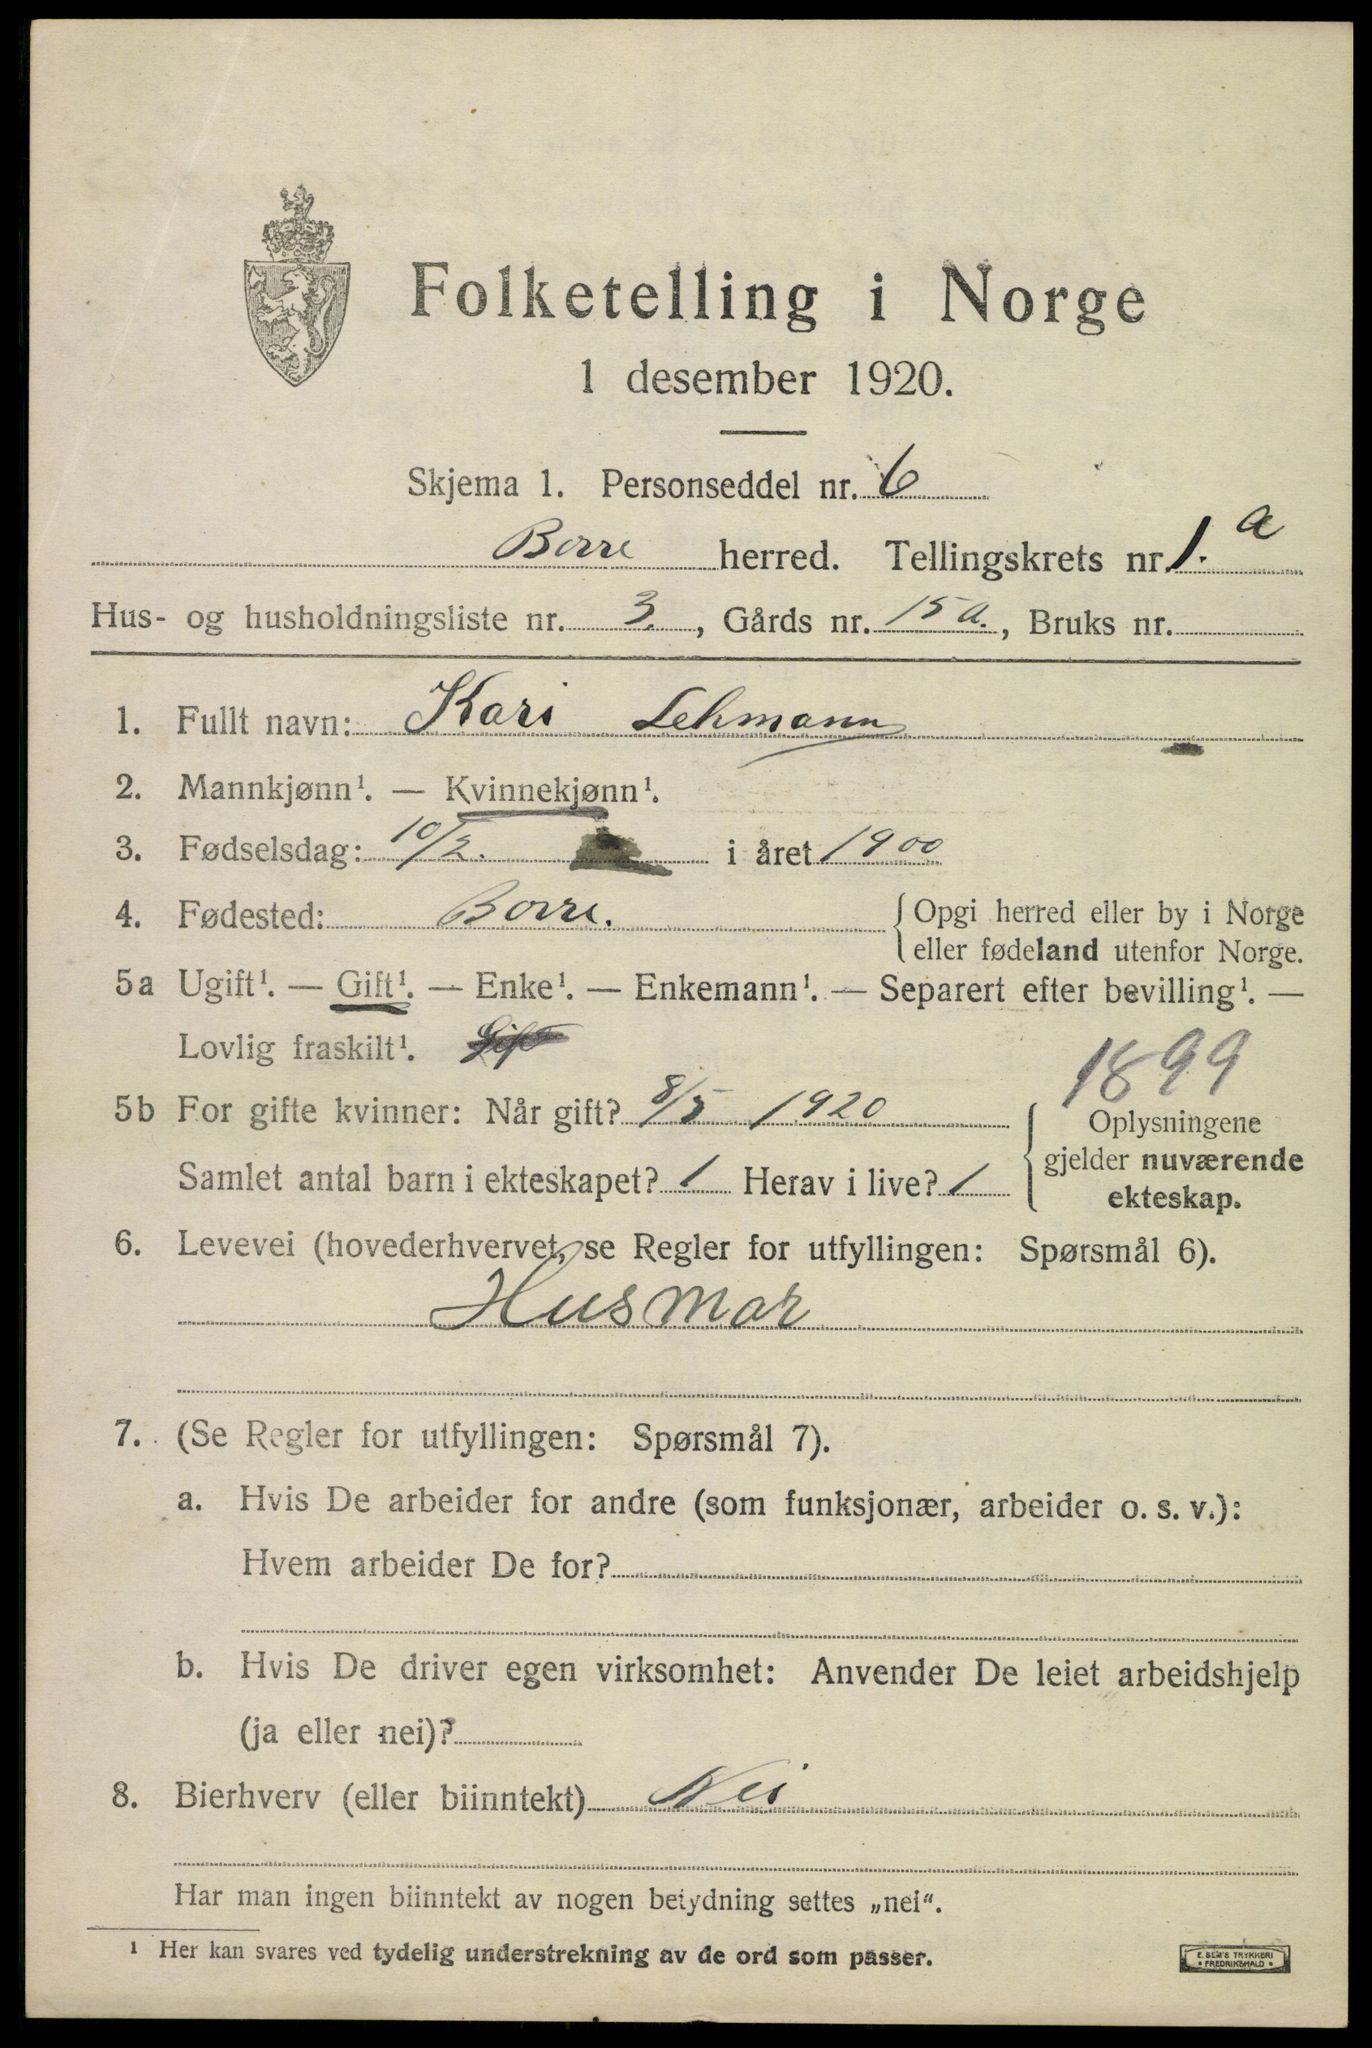 Folketelling i Norge
1 desember 1920.
Skjema 1. Personseddel nr. 6
Borre herred. Tellingskrets nr. 1. a
Hus- og husholdningsliste nr. 3. , Gårds nr. 15a. , Bruks nr.
1. Fullt navn: Kari Lehmann
2. Mannkjønn¹. — Kvinnekjønn¹.
3. Fødselsdag: 10/2. i året 1900
4. Fødested: Borre. { Opgi herred eller by i Norge
eller fødeland utenfor Norge.
5a Ugift¹. — Gift¹. — Enke¹. — Enkemann¹. — Separert efter bevilling¹. —
Lovlig fraskilt¹. Gift
1899
5b For gifte kvinner: Når gift? 8/5 1920 { Oplysningene
gjelder nuværende
Samlet antal barn i ekteskapet? 1 Herav i live? 1 ekteskap.
6. Levevei (hovederhvervet, se Regler for utfyllingen: Spørsmål 6).
Husmor
7. (Se Regler for utfyllingen: Spørsmål 7).
a. Hvis De arbeider for andre (som funksjonær, arbeider o. s. v.):
Hvem arbeider De for?
b. Hvis De driver egen virksomhet: Anvender De leiet arbeidshjelp
(ja eller nei)?
8. Bierhverv (eller biinntekt) Nei
Har man ingen biinntekt av nogen betydning settes „nei“.
¹ Her kan svares ved tydelig understrekning av de ord som passer.
E. SEM'S TRYKKERI
• FREDRIKSHALD •